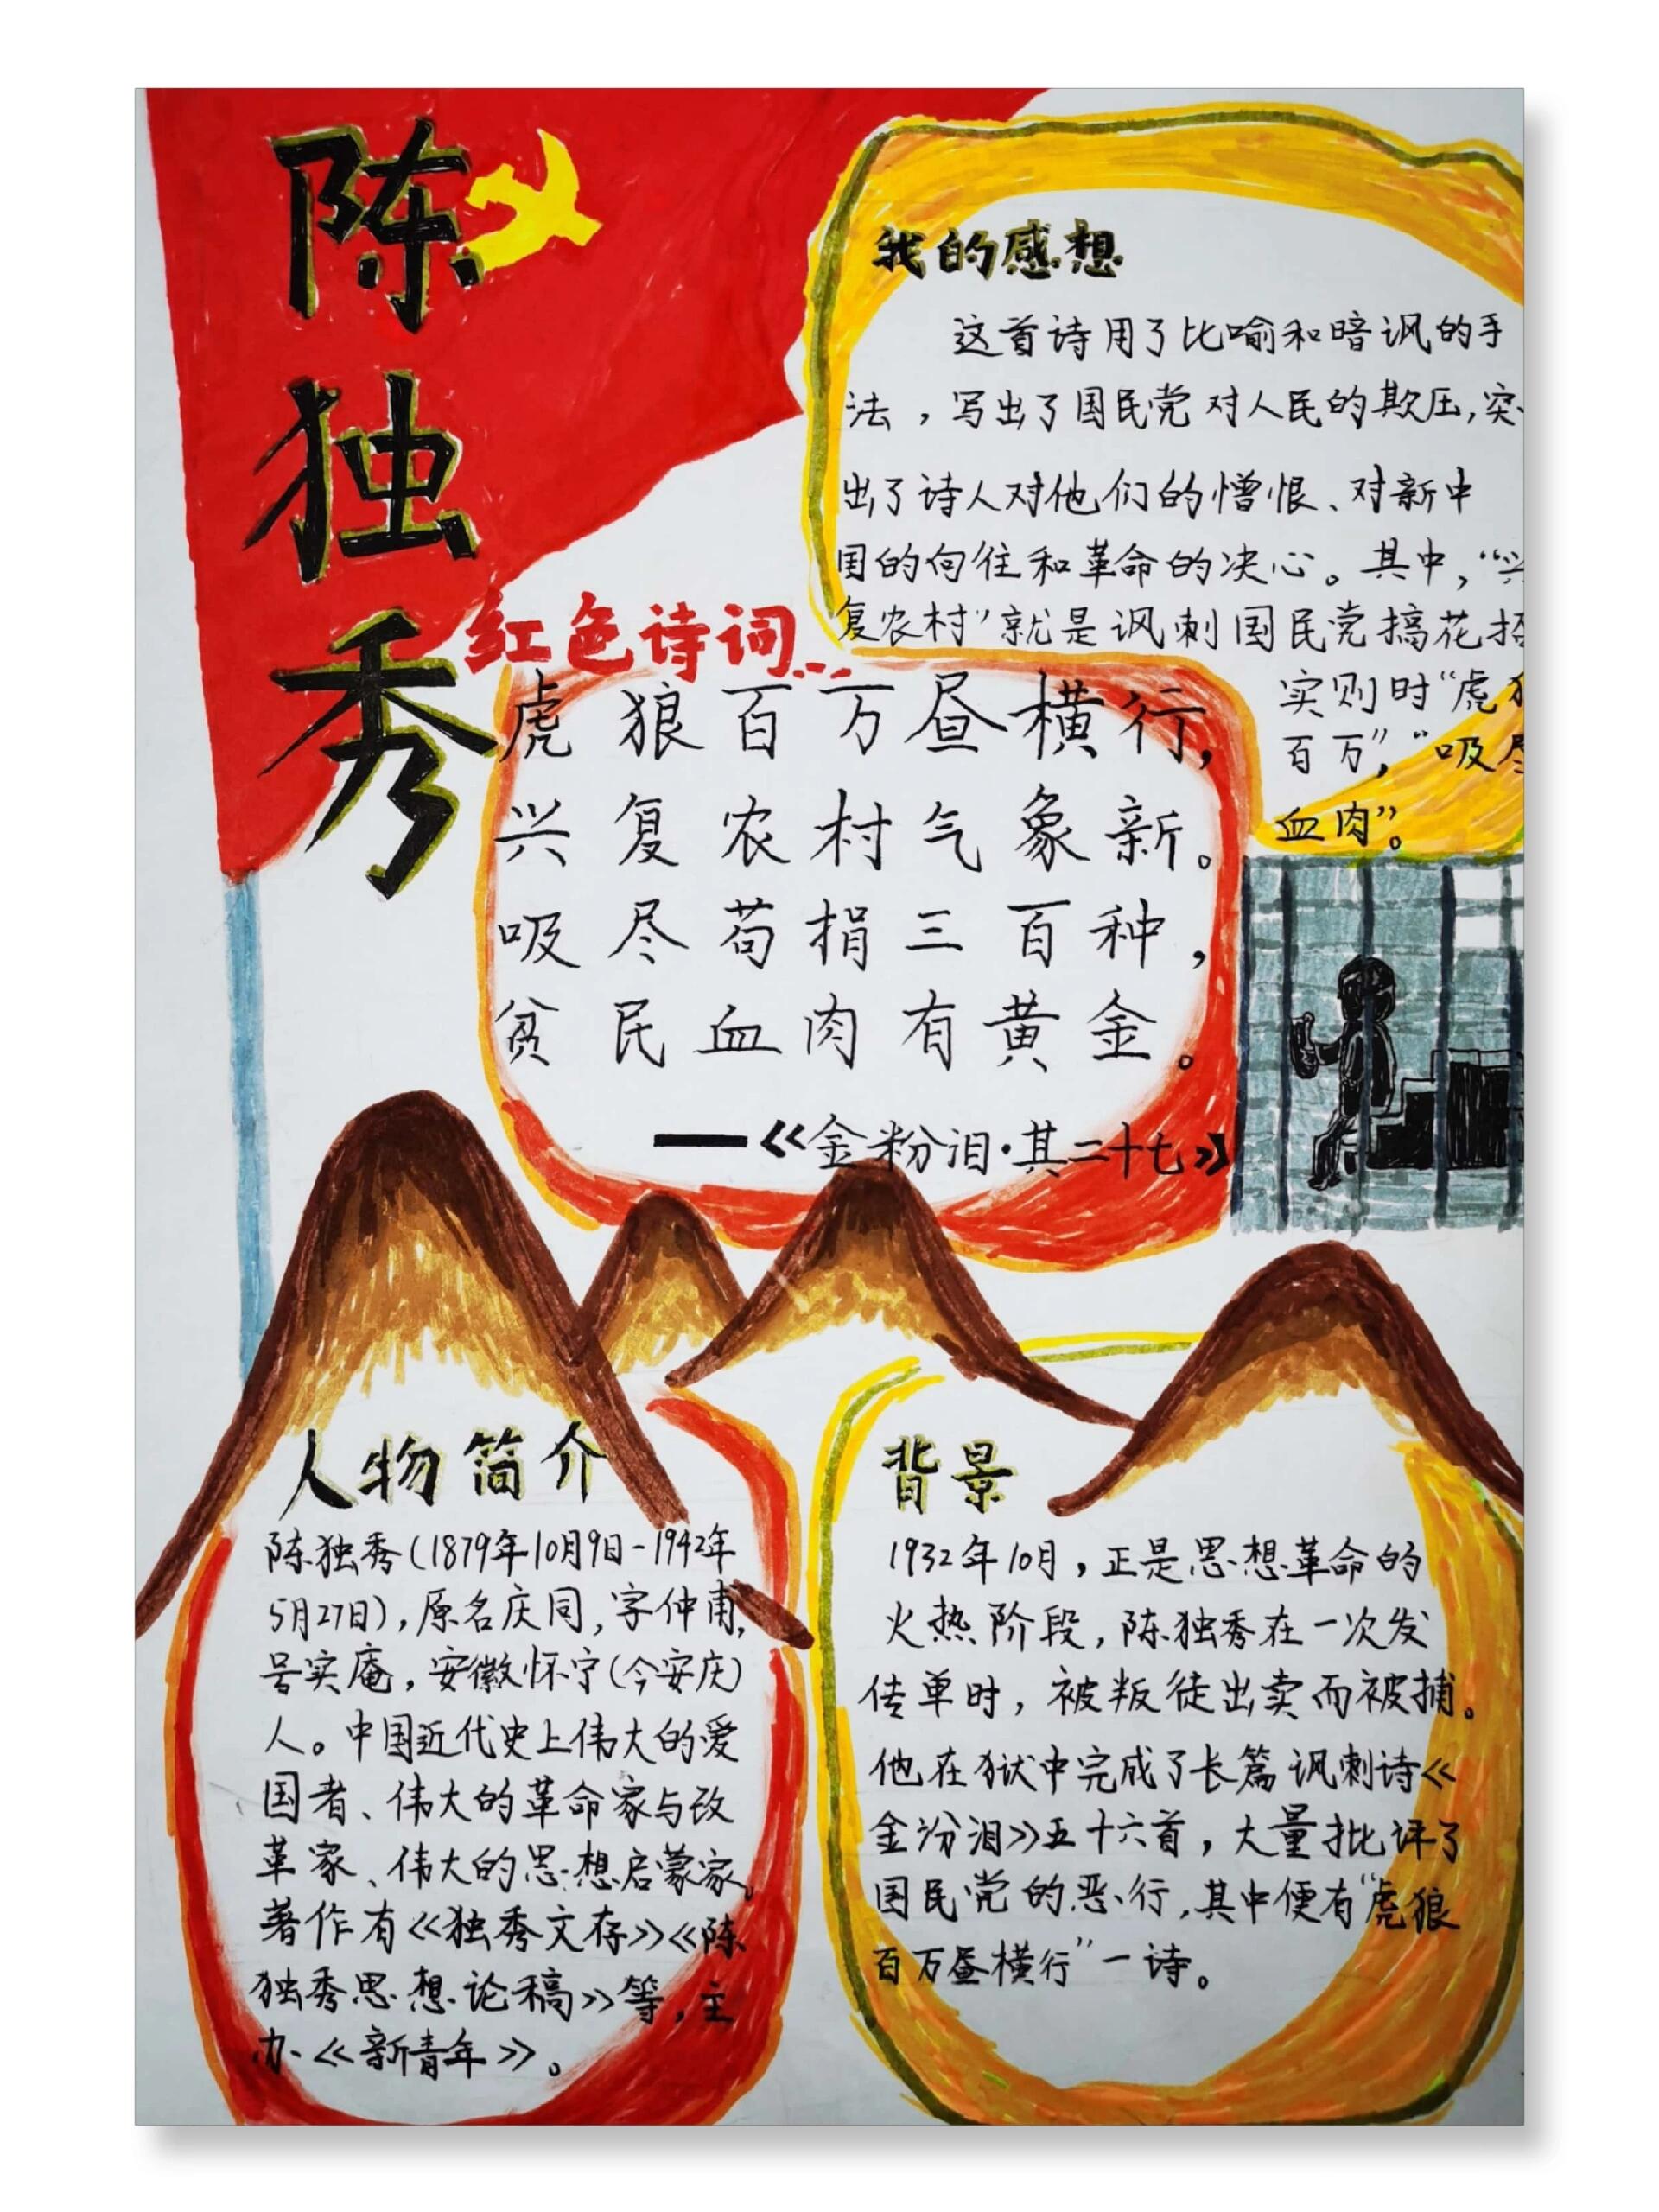 陈独秀
我的感想
这首诗用了比喻和暗讽的手
法，写出了国民党对人民的欺压，突
出了诗人对他们的憎恨、对新中
国的向往和革命的决心。其中，“兴
复农村”就是讽刺国民党搞花招
实则时“虎狼
百万”，“吸尽
血肉”。
红色诗词...
虎狼百万昼横行，
兴复农村气象新。
吸尽苟捐三百种，
贫民血肉有黄金。
——《金粉泪·其二十七》
人物简介
陈独秀（1879年10月9日-1942年
5月27日），原名庆同，字仲甫，
号实庵，安徽怀宁（今安庆）
人。中国近代史上伟大的爱
国者、伟大的革命家与改
革家、伟大的思想启蒙家。
著作有《独秀文存》《陈
独秀思想论稿》等，主
办《新青年》。
背景
1932年10月，正是思想革命的
火热阶段，陈独秀在一次发
传单时，被叛徒出卖而被捕。
他在狱中完成了长篇讽刺诗《
金汾泪》五十六首，大量批评了
国民党的恶行，其中便有“虎狼
百万昼横行”一诗。